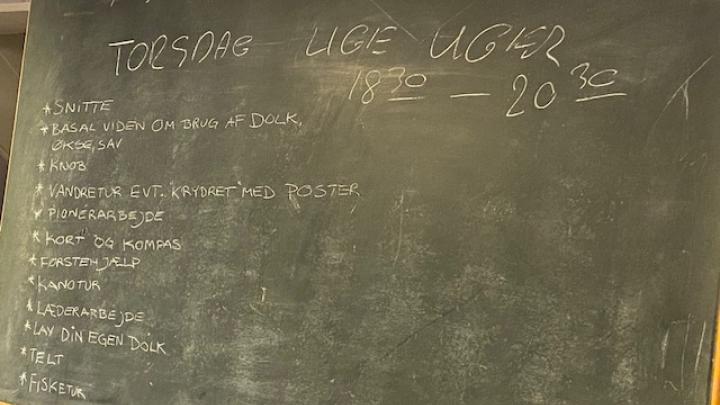 TORSDAG LIGE UGER
18 30 — 20 30
* SNITTE
* BASAL VIDEN OM BRUG AF DOLK,
ØKSE, SAV
* KNOB
* VANDRETUR EVT. "KRYDRET" MED POSTER
* PIONERARBEJDE
* KORT OG KOMPAS
* FØRSTEHJÆLP
* KANOTUR
* LÆDERARBEJDE
* LAV DIN EGEN DOLK
* TELT
* FISKETUR